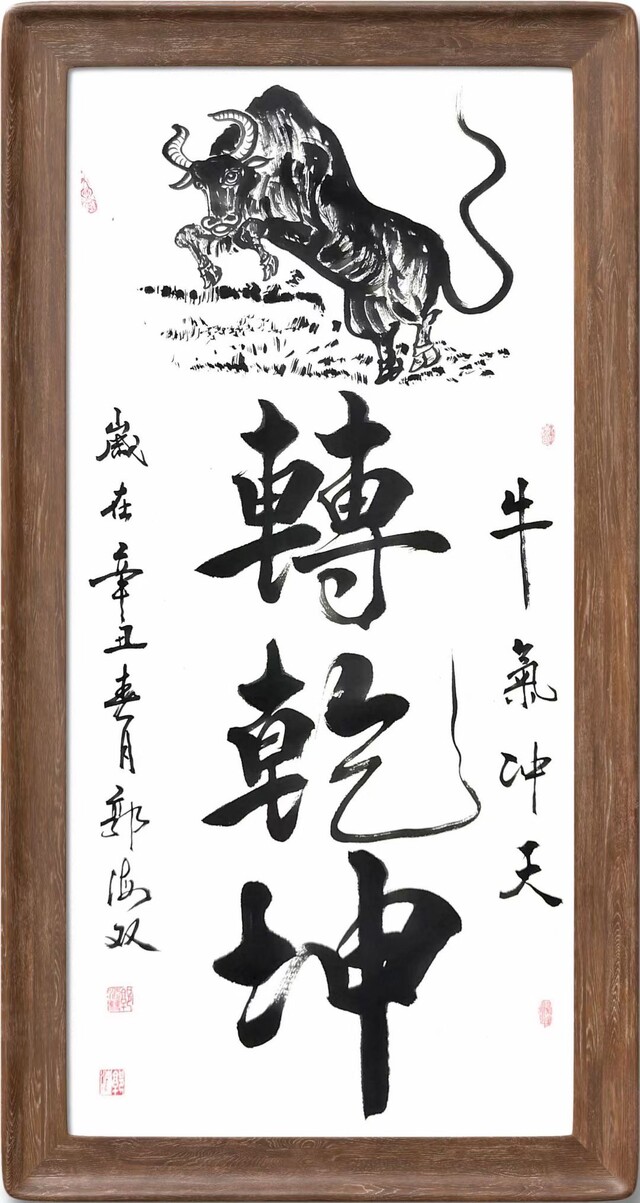 牛氣冲天
轉乾坤
歲在辛丑春月郭海双